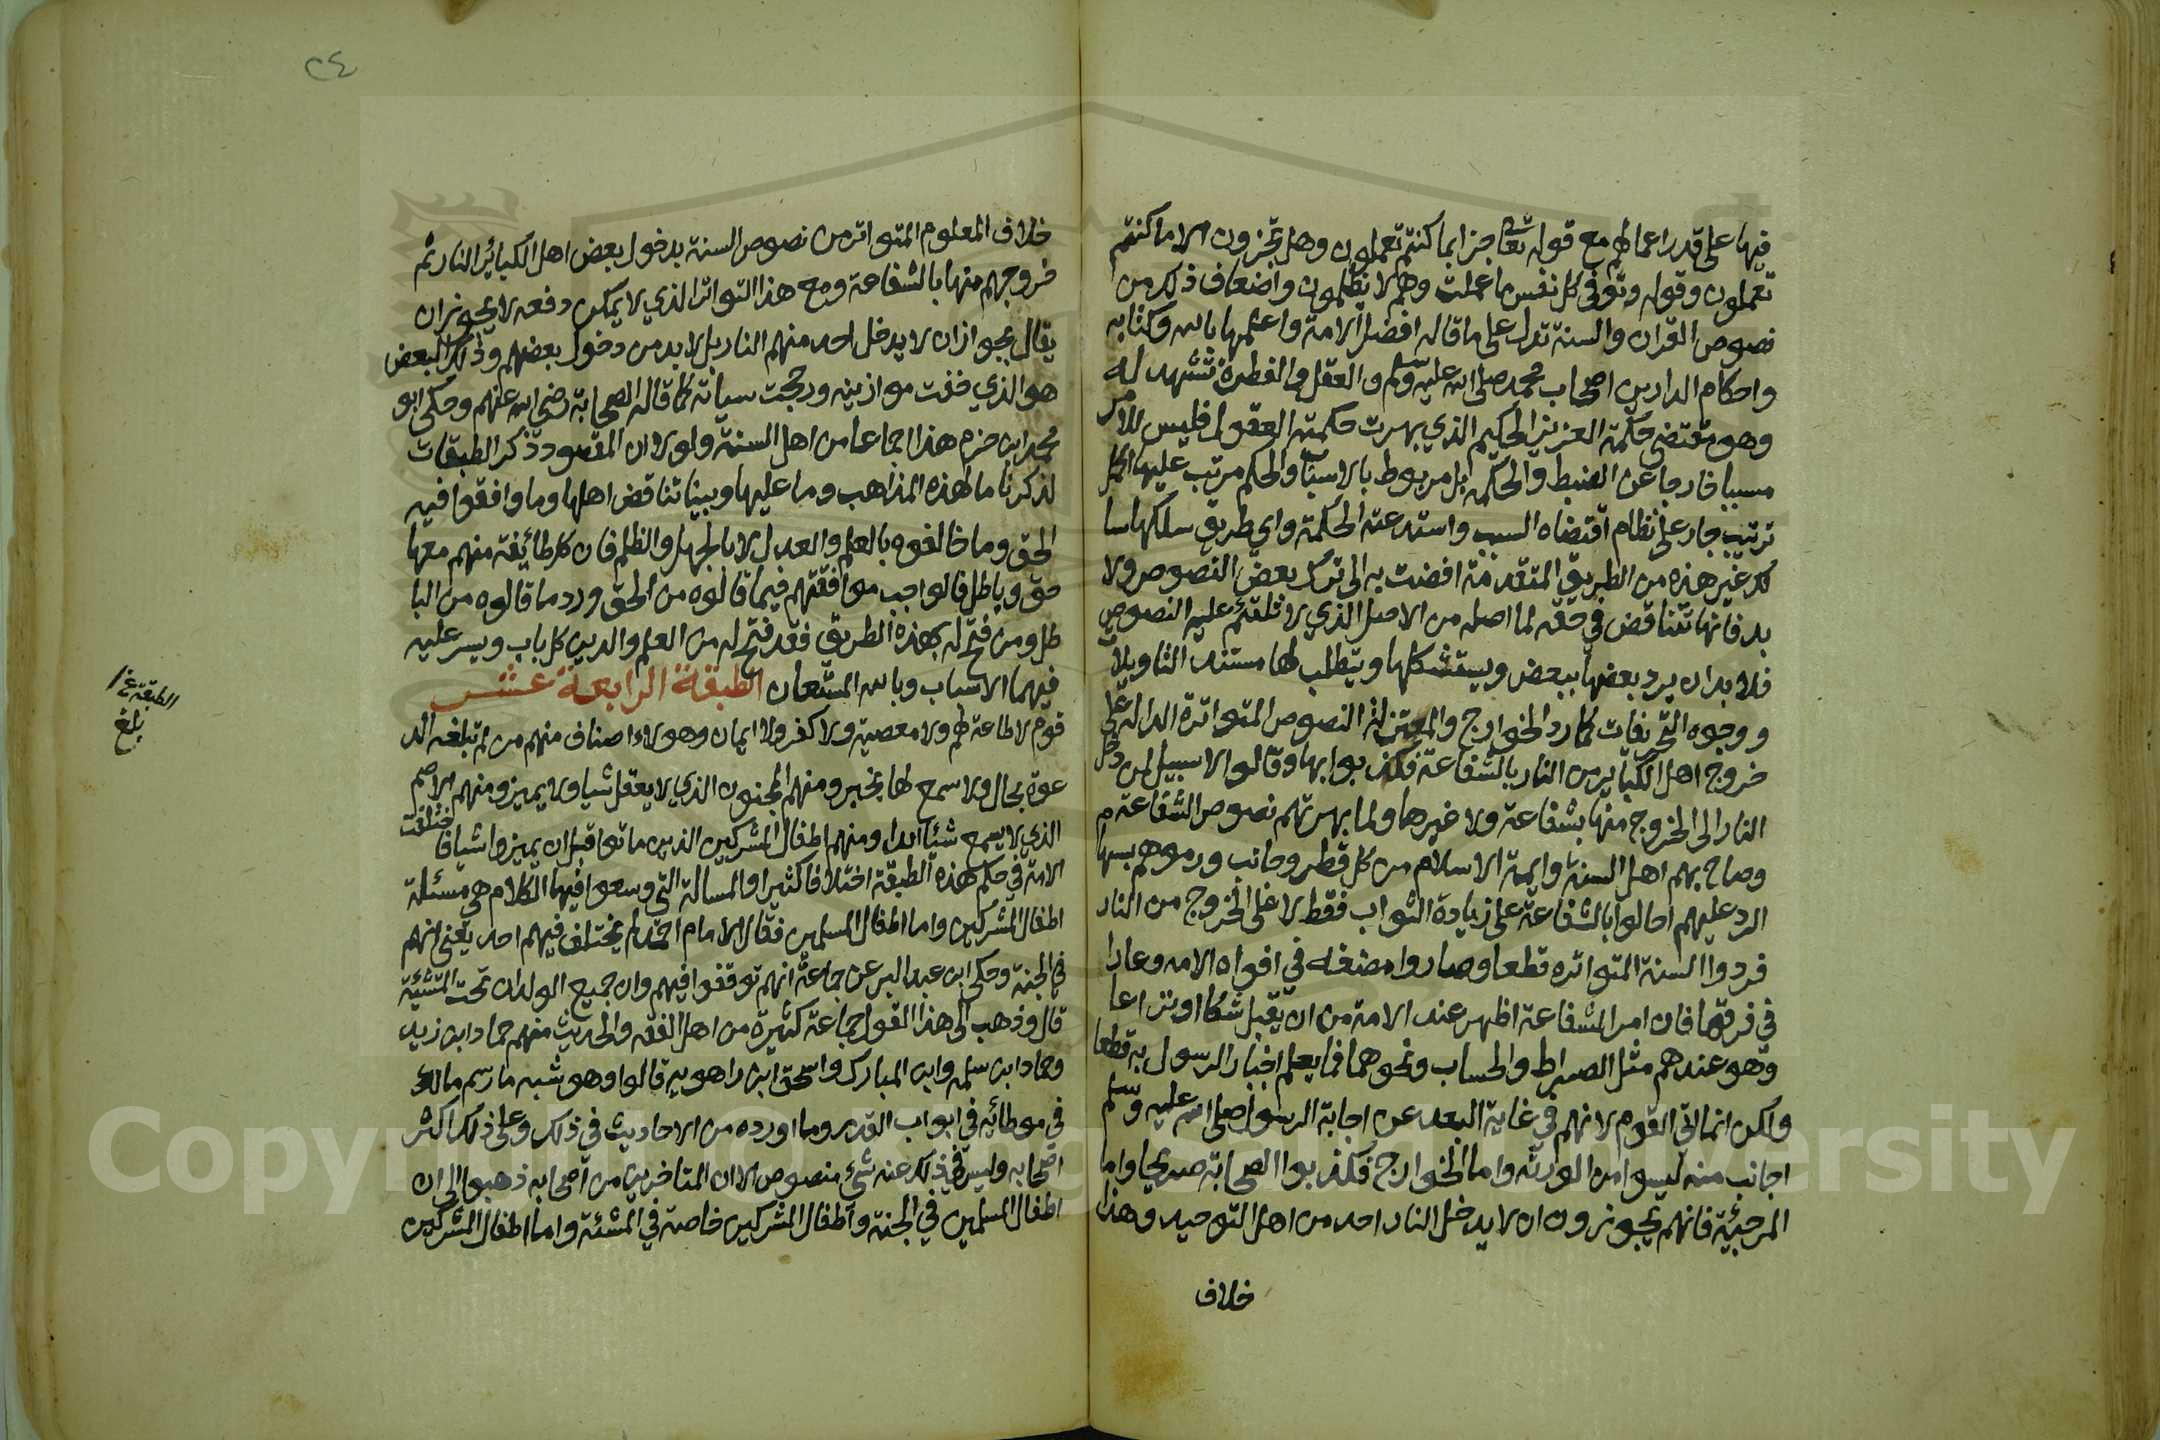 فيها على قدر اعمالهم مع قوله تعالى جزا بما كنتم تعملون وهل تجزون الا ما كنتم
تعملون وقوله وتوفى كل نفس ما عملت وهم لا يظلمون واضعاف ذلك من
نصوص القران والسنة تدل على ما قاله افضل الامة واعلمها بالله وكتابه
واحكام الدارين اصحاب محمد صلى الله عليه وسلم والعقل والفطرة تشهد له
وهو مقتضى حكمة العزيز الحكيم الذي بهرت حكمته العقول فليس للامر
مسببا خارجا عن الضبط والحكمة بل مربوط بالاسباب والحكم مرتب عليها اكمل
ترتيب جار على نظام اقتضاه السبب واستدعته الحكمة واي طريق سلكها سا
لك غير هذه من الطريق المتقدمة افضت به الى ترك بعض النصوص ولا
بد فانها تتناقض في حقه لما اصله من الاصل الذي لا تلتئم عليه النصوص
فلا بد ان يرد بعضها ببعض ويستشكلها ويتطلب لها مستند التاويلات
ووجوه التحريفات كما رد الخوارج والمعتزلة النصوص المتواترة الدالة على
خروج اهل الكباير من النار بالشفاعة فكذبوا بها وقالوا لا سبيل لمن دخل
النار الى الخروج منها بشفاعة ولا غيرها ولما بهرتهم نصوص الشفاعة م
وصاح بهم اهل السنة وايمة الاسلام من كل قطر وجانب ورموهم بسهام
الرد عليهم احالوا بالشفاعة على زيادة الثواب فقط لا على الخروج من النار
فردوا السنة المتواتره قطعا وصاروا مضغه في افواه الامه وعارا
في فرقها فان امر الشفاعة اظهر عند الامة من ان يقبل شكا او نزاعا
وهو عندهم مثل الصراط والحساب ونحوهما فما يعلم اخبار الرسول به قطعا
ولكن انما اتى القوم لانهم في غاية البعد عن اجابة الرسول صلى الله عليه وسلم
اجانب منه ليسوا من الورثه واما الخوارج فكذبوا الصحابة صريحا واما
المرجئية فانهم يجوزون ان لا يدخل النار احد من اهل التوحيد وهذا
خلاف
٢٤
خلاف المعلوم المتواتر من نصوص السنة بدخول بعض اهل الكبائر النار ثم
خروجهم منها بالشفاعة ومع هذا التواتر الذي لا يمكن دفعه لا يجوز ان
يقال بجواز ان لا يدخل احد منهم النار بل لا بد من دخول بعضهم وذلك البعض
هو الذي خفت موازينه ورجحت سياته كما قاله الصحابة رضي الله عنهم وحكى ابو
محمد ابن حزم هذا اجماعا من اهل السنة ولولا ان المقصود ذكر الطبقات
لذكرنا ما لهذه المذاهب وما عليها وبينا تناقض اهلها وما وافقوا فيه
الحق وما خالفوه بالعلم والعدل لا بالجهل والظلم فان كل طائفة منهم معها
حق وباطل فالواجب موافقتهم فيما قالوه من الحق ورد ما قالوه من البا
طل ومن فتح له بهذه الطريق فقد فتح له من العلم والدين كل باب ويسر عليه
فيهما الاسباب وبالله المستعان الطبقة الرابعة عشر
قوم لا طاعة لهم ولا معصية ولا كفر ولا ايمان وهولاء اصناف منهم من لم تبلغه الد
عوة بحال ولا سمع لها بخبر ومنهم المجنون الذي لا يعقل شيا ولا يميز ومنهم الاصم
الذي لا يسمع شيئا ابدا ومنهم اطفال المشركين الذين ماتوا قبل ان يميزوا شيا فاختلفت
الامة في حكم هذه الطبقة اختلافا كثيرا والمسالة التي وسعوا فيها الكلام هي مسئلة
اطفال المشركين واما اطفال المسلمين فقال الامام احمد لم يختلف فيهم احد يعني انهم
في الجنة وحكى ابن عبد البر عن جماعة انهم توقفوا فيهم وان جميع الولدان تحت المشئية
قال وذهب الى هذا القول جماعة كثيرة من اهل الفقه والحديث منهم حماد ابن زيد
وحماد ابن سلمه وابن المبارك واسحق ابن راهويه قالوا وهو شبه ما رسم مالك
في موطائيه في ابواب القدر وما اورده من الاحاديث في ذلك وعلى ذلك اكثر
اصحابه وليس في ذلك عنه شيء منصوص الا ان المتاخرين من اصحابه ذهبوا الى ان
اطفال المسلمين في الجنة واطفال المشركين خاصة في المشئة واما اطفال المشركين
الطبقة
بلغ
Copyright © King Saud University